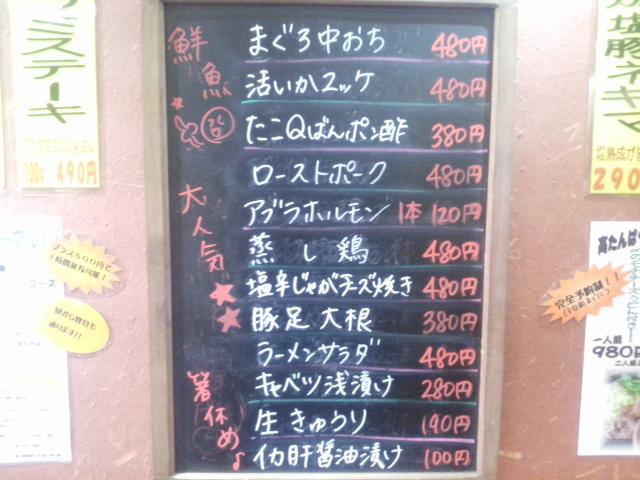 鮮魚
まぐろ中おち 480円
活いかユッケ 480円
たこQばんポン酢 380円
ローストポーク 480円
大人気
アブラホルモン 1本 120円
蒸し鶏 480円
塩辛じゃがチーズ焼き 480円
豚足大根 380円
ラーメンサラダ 480円
箸休め♪
キャベツ浅漬け 280円
生きゅうり 190円
イカ肝醤油漬け 100円
ステーキ
100g 490円
プラス500円で
1時間延長可能!
コース
塩豚ネギマ
塩熟成が
290
高たんぱく
完全予約制!!
一人前
980円
二人前